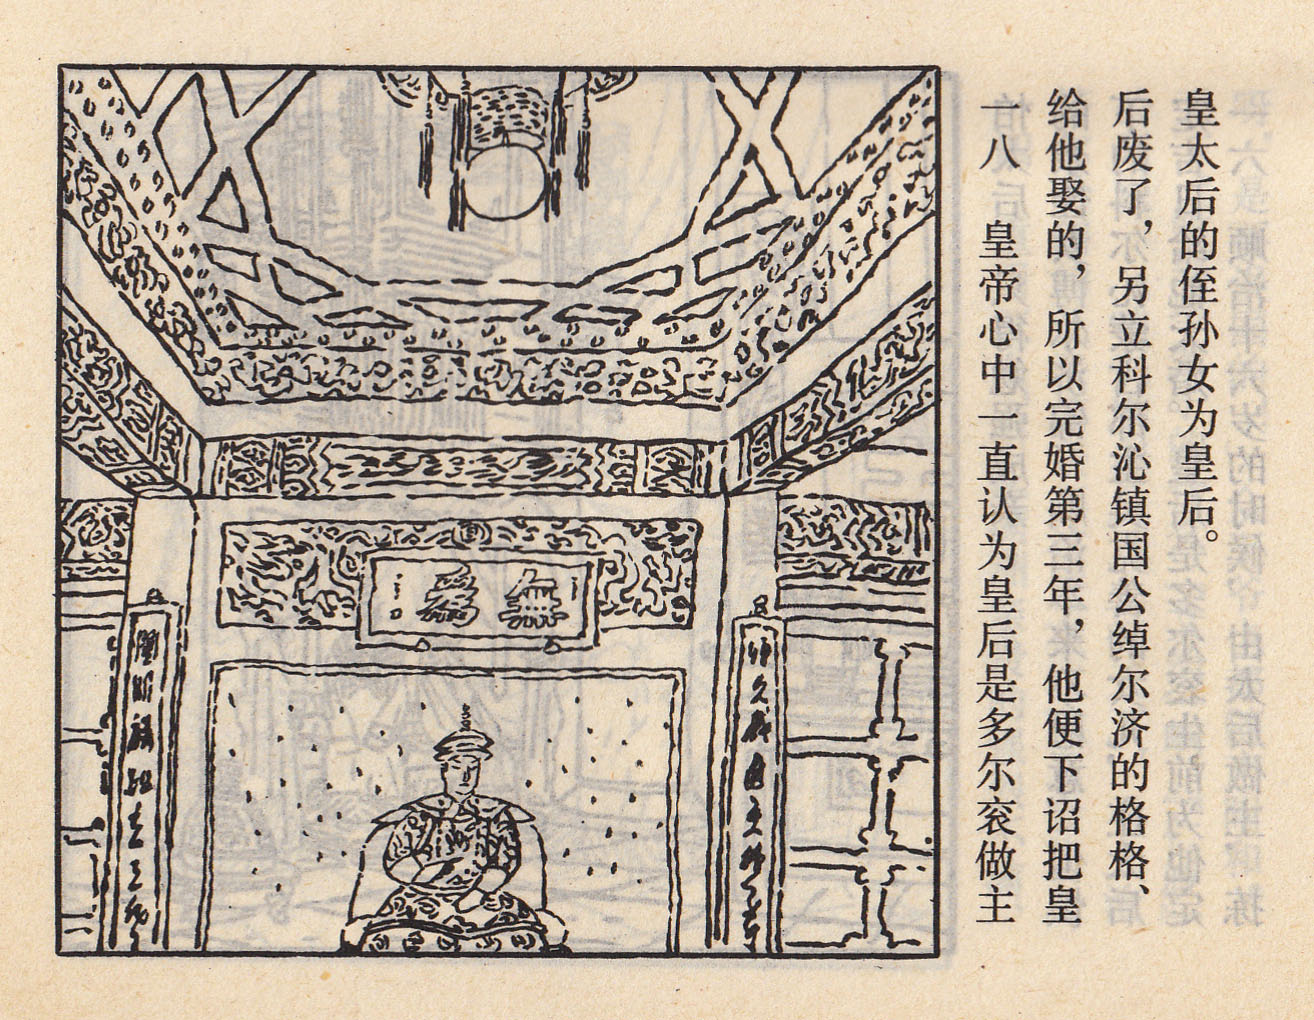 一八　皇帝心中一直认为皇后是多尔衮做主
给他娶的，所以完婚第三年，他便下诏把皇
后废了，另立科尔沁镇国公绰尔济的格格、
皇太后的侄孙女为皇后。